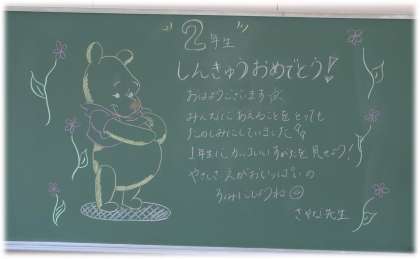 2年生
しんきゅうおめでとう!
おはようございます☆
みんなにあえることをとっても
たのしみにしていました
1年生にカッコいいすがたを見せよう!
やさしさえがおいっぱいの
にしようね
先生